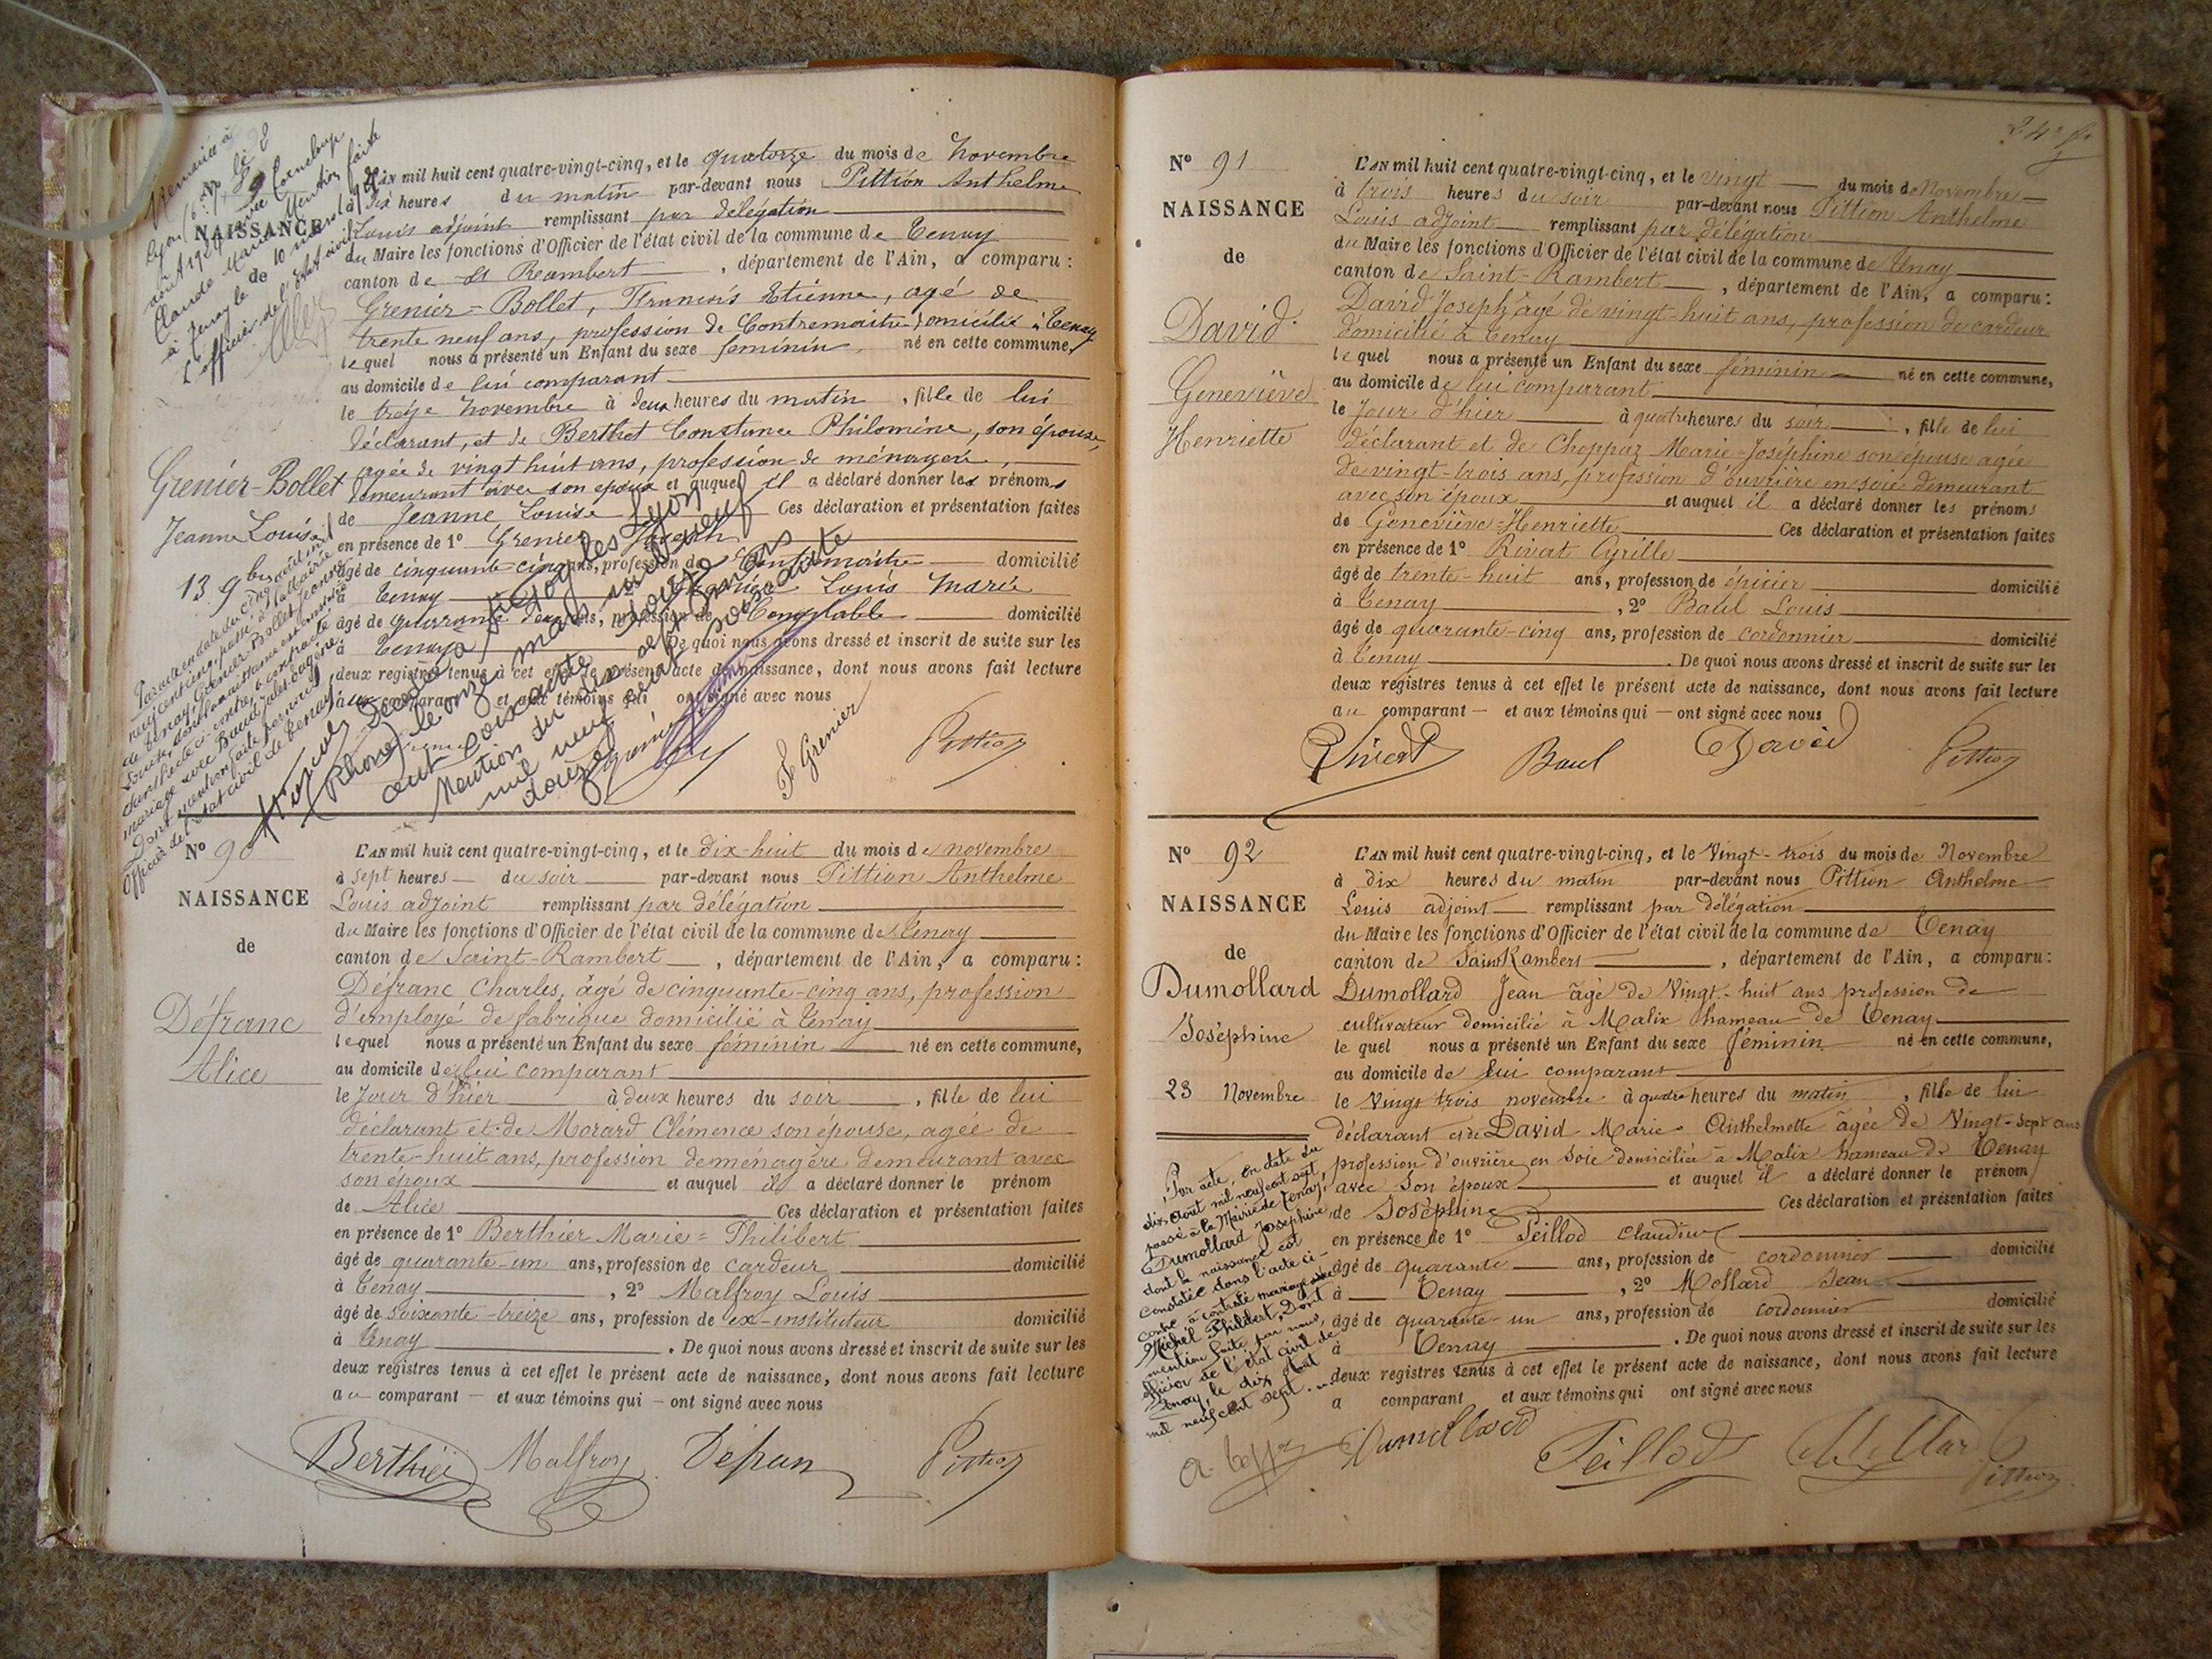 L'AN mil huit cent quatre-vingt-cinq, et le quatorze du mois de Novembre
à dix heures du matin par-devant nous Pittion Anthelme
Louis adjoint remplissant par délégation
du Maire les fonctions d'Officier de l'état civil de la commune de Tenay
canton de St Rambert, département de l'Ain, a comparu :
Grenier=Bollet, François Etienne, agé de
trente neuf ans, profession de Contremaitre domicilié à Tenay
lequel nous a présenté un Enfant du sexe féminin, né en cette commune,
au domicile de lui comparant
le treize novembre à deux heures du matin, fille de lui
déclarant, et de Berthet Constance Philomène, son épouse,
agée de vingt huit ans, profession de ménagère,
demeurant avec son époux et auquel il a déclaré donner les prénoms
de Jeanne Louise Ces déclaration et présentation faites
en présence de 1° Grenier Joseph
âgé de cinquante-cinq ans, profession de Contremaitre domicilié
à Tenay Louis Marie
âgé de quarante deux ans, profession de Comptable domicilié
à Tenay De quoi nous avons dressé et inscrit de suite sur les
deux registres tenus à cet effet le présent acte de naissance, dont nous avons fait lecture
au comparant et aux témoins qui ont signé avec nous
F Grenier Pittion
NAISSANCE
de
Grenier-Bollet
Jeanne Louise
13 9bre
Remariée à
Lyon
août 1924 avec
Claude Marie Corneloup
Mention faite
à Tenay le 10
L'officier de l'Etat civil
Par acte en date du cinq
neuf cent cinq, passé à la Mairie
de Tenay, Grenier Bollet Jeanne
Louise, dont la naissance est constatée
dans l'acte ci-contre, a contracté
mariage avec
Dont mention faite par nous
Officier de l'état civil de Tenay
Décédée à Ste Foy les Lyon
(Rhône) le onze mars mil neuf
cent soixante douze
Mention du dix sept mars
mil neuf cent soixante
douze
N° 90
NAISSANCE
de
Défranc
Alice
L'AN mil huit cent quatre-vingt-cinq, et le dix-huit du mois de novembre
à sept heures du soir par-devant nous Pittion Anthelme
Louis adjoint remplissant par délégation
du Maire les fonctions d'Officier de l'état civil de la commune de Tenay
canton de Saint-Rambert, département de l'Ain, a comparu :
Défranc Charles, âgé de cinquante-cinq ans, profession
d'employé de fabrique domicilié à Tenay
lequel nous a présenté un Enfant du sexe féminin né en cette commune,
au domicile de lui comparant
le jour d'hier à deux heures du soir, fille de lui
déclarant et de Morard Clémence son épouse, agée de
trente-huit ans, profession de ménagère demeurant avec
son époux et auquel il a déclaré donner le prénom
de Alice Ces déclaration et présentation faites
en présence de 1° Berthier Marie=Philibert
âgé de quarante-un ans, profession de cardeur domicilié
à Tenay, 2° Malfroy Louis
âgé de soixante-treize ans, profession de ex-instituteur domicilié
à Tenay. De quoi nous avons dressé et inscrit de suite sur les
deux registres tenus à cet effet le présent acte de naissance, dont nous avons fait lecture
au comparant — et aux témoins qui — ont signé avec nous
Berthier Malfroy Défran Pittion
N° 91
NAISSANCE
de
David
Geneviève
Henriette
L'AN mil huit cent quatre-vingt-cinq, et le vingt du mois de Novembre
à trois heures du soir par-devant nous Pittion Anthelme
Louis adjoint remplissant par délégation
du Maire les fonctions d'Officier de l'état civil de la commune de Tenay
canton de Saint-Rambert, département de l'Ain, a comparu :
David Joseph âgé de vingt-huit ans, profession de cardeur
domicilié à Tenay
lequel nous a présenté un Enfant du sexe féminin né en cette commune,
au domicile de lui comparant
le jour d'hier à quatre heures du soir, fille de lui
déclarant et de Choppaz Marie-Joséphine son épouse agée
de vingt-trois ans, profession d'ouvrière en soie demeurant
avec son époux et auquel il a déclaré donner les prénoms
de Geneviève=Henriette Ces déclaration et présentation faites
en présence de 1° Rivat Cyrille
âgé de trente-huit ans, profession de épicier domicilié
à Tenay, 2° Baul Louis
âgé de quarante-cinq ans, profession de cordonnier domicilié
à Tenay. De quoi nous avons dressé et inscrit de suite sur les
deux registres tenus à cet effet le présent acte de naissance, dont nous avons fait lecture
au comparant — et aux témoins qui — ont signé avec nous
Baul David Pittion
N° 92
NAISSANCE
de
Dumollard
Joséphine
23 Novembre
L'AN mil huit cent quatre-vingt-cinq, et le Vingt-trois du mois de Novembre
à dix heures du matin par-devant nous Pittion Anthelme
Louis adjoint remplissant par délégation
du Maire les fonctions d'Officier de l'état civil de la commune de Tenay
canton de Saint Rambert, département de l'Ain, a comparu :
Dumollard Jean âgé de Vingt-huit ans profession de
cultivateur domicilié à Malix hameau de Tenay
lequel nous a présenté un Enfant du sexe féminin né en cette commune,
au domicile de lui comparant
le Vingt trois novembre à quatre heures du matin, fille de lui
déclarant et de David Marie Anthelmette âgée de Vingt-sept ans
profession d'ouvrière en soie domiciliée à Malix hameau de Tenay
avec son époux et auquel il a déclaré donner le prénom
de Joséphine Ces déclaration et présentation faites
en présence de 1° Peillod Claudius
âgé de quarante ans, profession de cordonnier domicilié
à Tenay, 2° Mollard Jean
âgé de quarante-un ans, profession de cordonnier domicilié
à Tenay. De quoi nous avons dressé et inscrit de suite sur les
deux registres tenus à cet effet le présent acte de naissance, dont nous avons fait lecture
a comparant et aux témoins qui ont signé avec nous
Dumollard Peillod Mollard Pittion
Par acte, en date du
dix Août mil neuf cent sept
passé à la Mairie de Tenay,
Dumollard Joséphine,
dont la naissance est
constatée dans l'acte ci-
contre à contracté mariage avec
Michel Philibert, Dont
mention faite par nous,
officier de l'état civil de
Tenay, le dix Août
mil neuf cent sept.